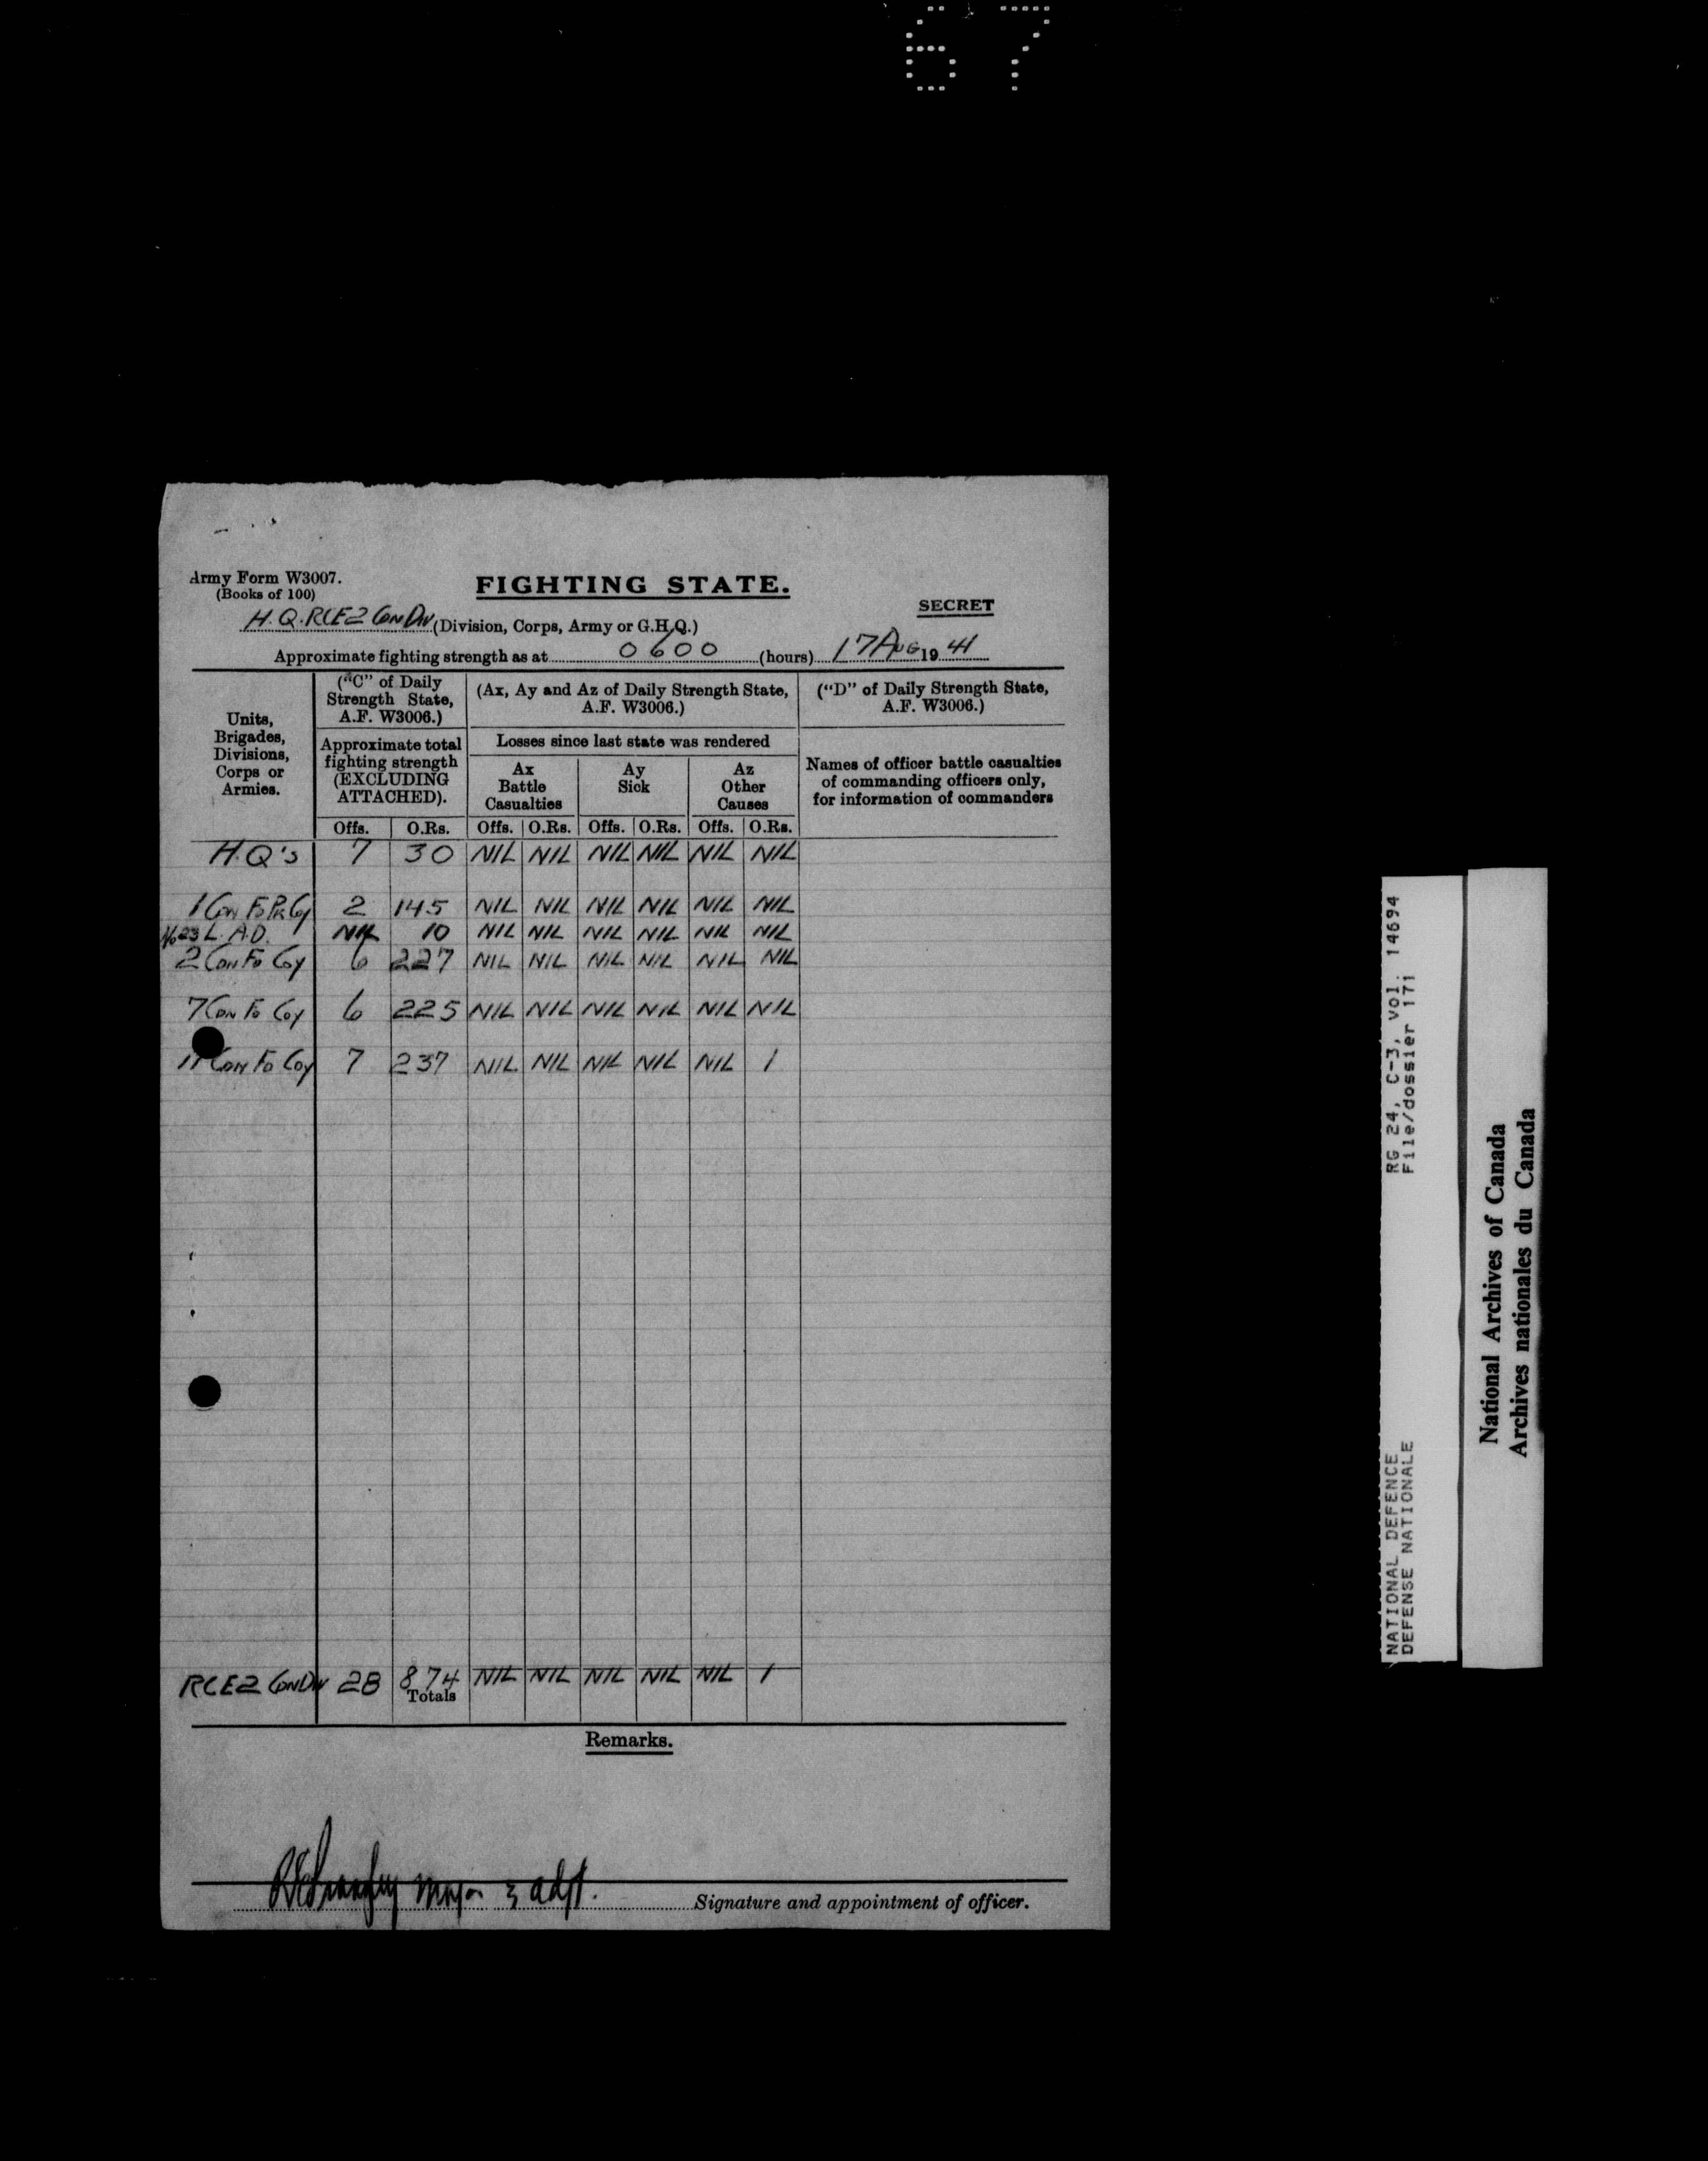 67
Army Form W3007.
(Books of 100)
FIGHTING STATE.
SECRET
H.Q. RCE 2 CDN DIV (Division, Corps, Army or G.H.Q.)
Approximate fighting strength as at 0600 (hours) 17 AUG 19 41
Units, Brigades, Divisions, Corps or Armies.
("C" of Daily Strength State, A.F. W3006.)
(Ax, Ay and Az of Daily Strength State, A.F. W3006.)
("D" of Daily Strength State, A.F. W3006.)
Approximate total fighting strength (EXCLUDING ATTACHED).
Losses since last state was rendered
Names of officer battle casualties of commanding officers only, for information of commanders
Ax Battle Casualties
Ay Sick
Az Other Causes
Offs. O.Rs. Offs. O.Rs. Offs. O.Rs. Offs. O.Rs.
H.Q's 7 30 NIL NIL NIL NIL NIL NIL
1 CDN FD PK COY 2 145 NIL NIL NIL NIL NIL NIL
No 23 L.A.D. NIL 10 NIL NIL NIL NIL NIL NIL
2 CDN FD COY 6 227 NIL NIL NIL NIL NIL NIL
7 CDN FD COY 6 225 NIL NIL NIL NIL NIL NIL
11 CDN FD COY 7 237 NIL NIL NIL NIL NIL 1
RCE 2 CDN DIV 28 874 NIL NIL NIL NIL NIL 1
Totals
Remarks.
Major & adjt.
Signature and appointment of officer.
NATIONAL DEFENCE RG 24, C-3, vol. 14694
DEFENSE NATIONALE File/dossier 171
National Archives of Canada
Archives nationales du Canada